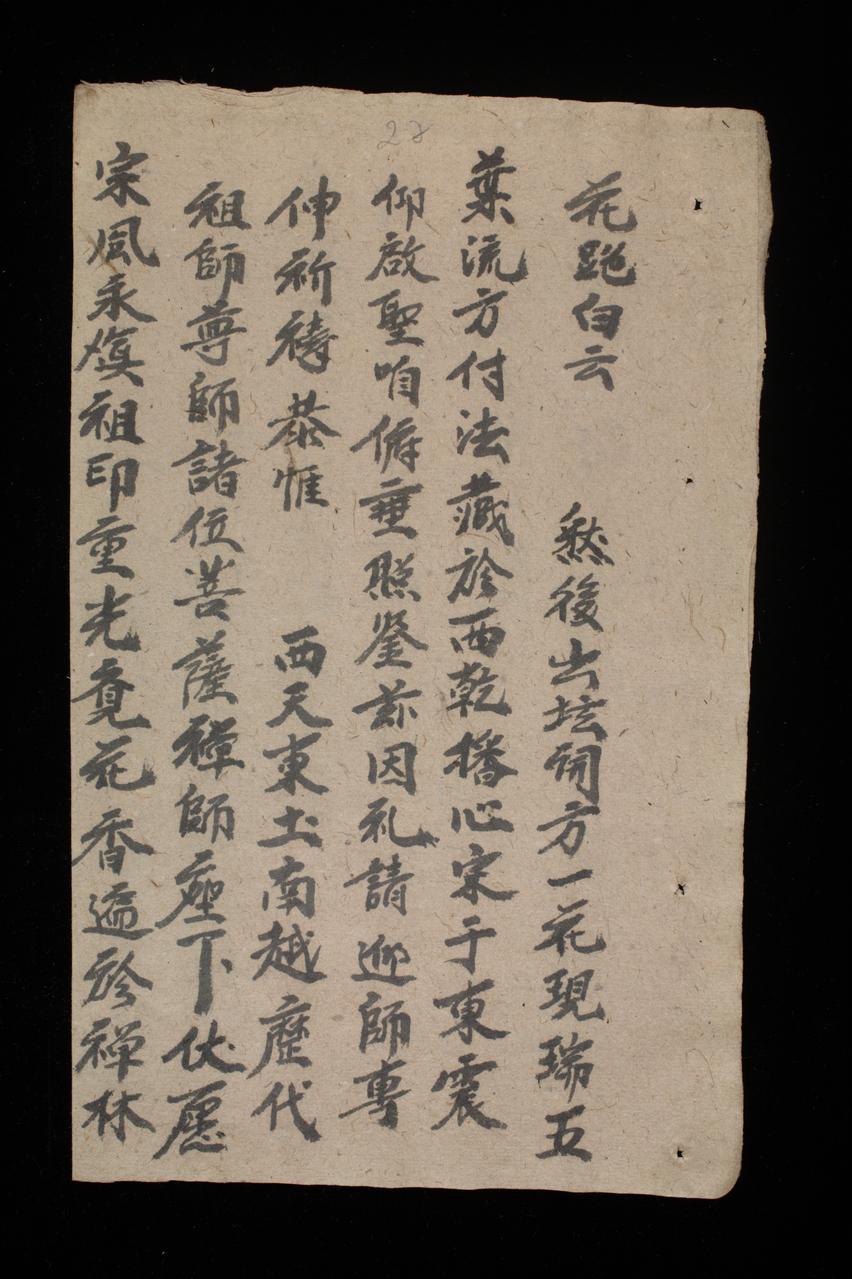 28
花跑白云 愁後出坛開方一花現瑞五
葉流方付法藏於西乾播心宗于東震
仰啟聖咱俯垂照鉴茲因礼請迎師專
伸祈禱恭惟 西天東土南越歷代
祖師尊師諸位菩薩禪師座下伏愿
宗風永奐祖印重光覔花香遍於禅林